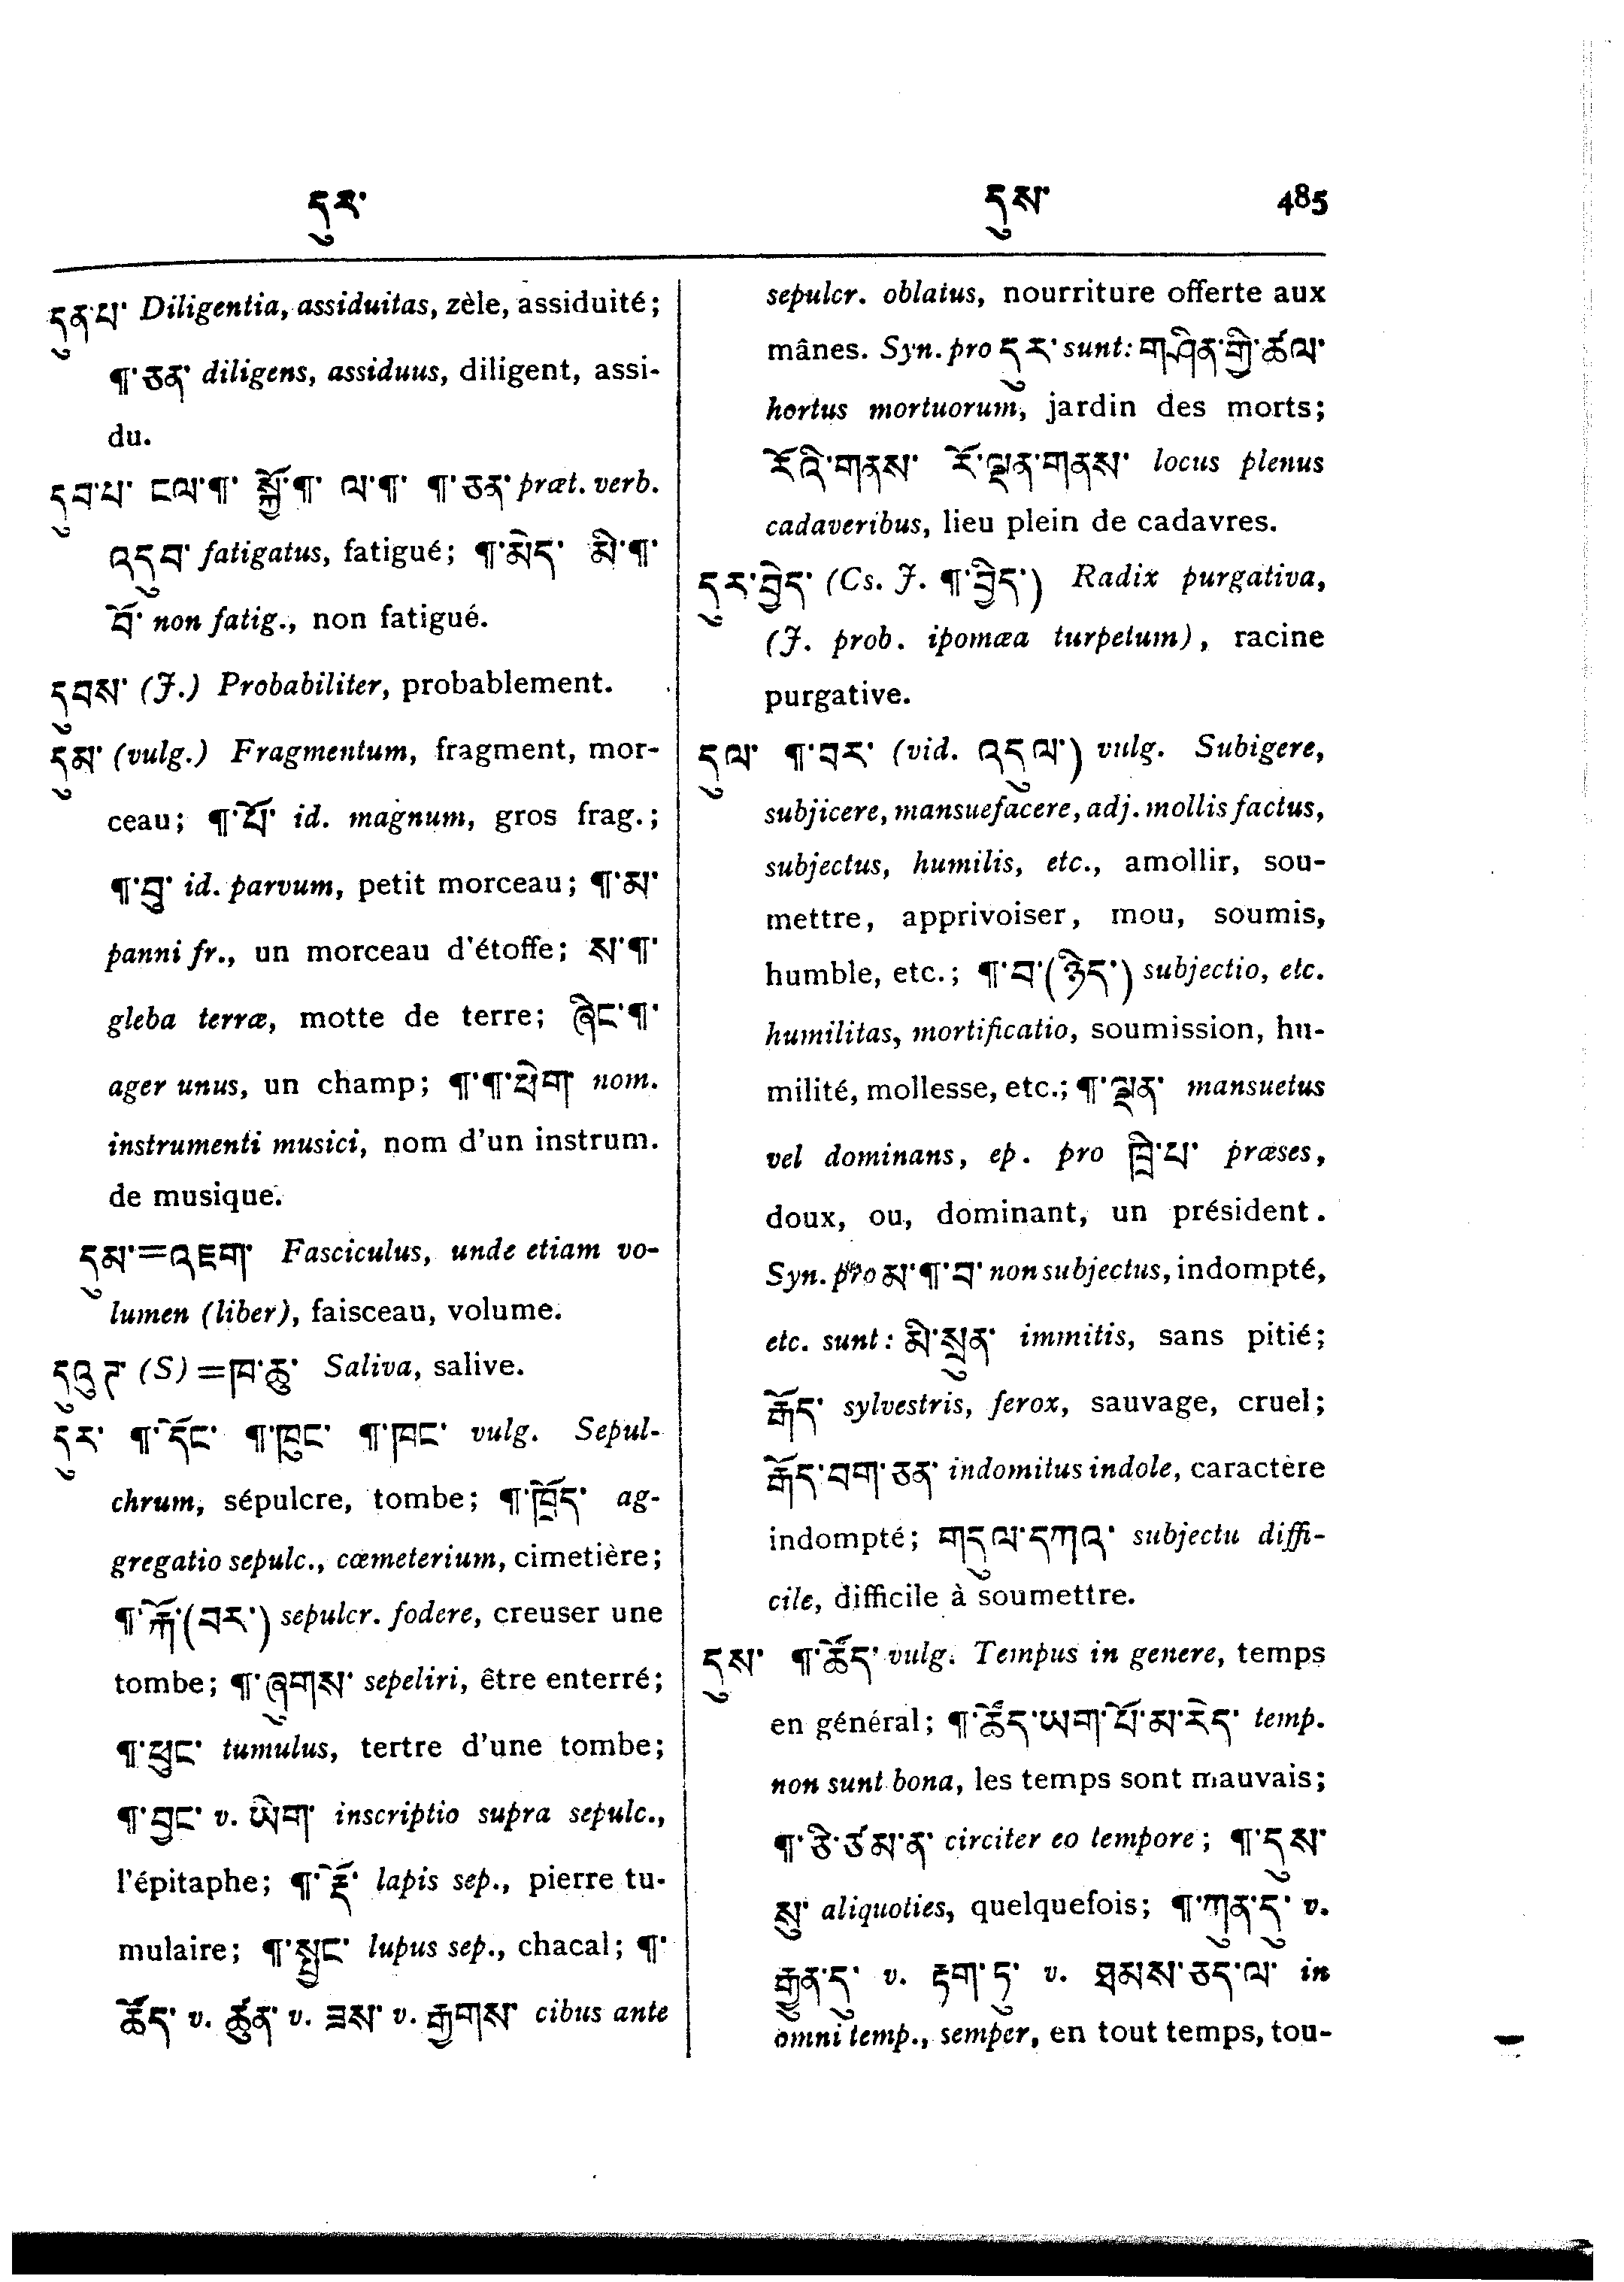 དུར་ དུས་ 485
དུན་པ་ Diligentia, assiduitas, zèle, assiduité;
¶་ཅན་ diligens, assiduus, diligent, assi-
du.
དུབ་པ་ ངལ་¶་ སྐྱོ་¶་ ལ་¶་ ¶་ཅན་ præt. verb.
འདུབ་ fatigatus, fatigué; ¶་མེད་ མི་¶་
བོ་ non fatig., non fatigué.
དུབས་ (J.) Probabiliter, probablement.
དུམ་ (vulg.) Fragmentum, fragment, mor-
ceau; ¶་པོ་ id. magnum, gros frag.;
¶་བུ་ id. parvum, petit morceau; ¶་མ་
panni fr., un morceau d'étoffe; ས་¶་
gleba terræ, motte de terre; ཞིང་¶་
ager unus, un champ; ¶་¶་ཕྲེག་ nom.
instrumenti musici, nom d'un instrum.
de musique.
དུམ་=འཇག་ Fasciculus, unde etiam vo-
lumen (liber), faisceau, volume.
(S) =ཁ་ཆུ་ Saliva, salive.
དུར་ ¶་དོང་ ¶་ཁུང་ ¶་ཁང་ vulg. Sepul-
chrum, sépulcre, tombe; ¶་ཁྲོད་ ag-
gregatio sepulc., cœmeterium, cimetière;
¶་རྐོ་(བར་) sepulcr. fodere, creuser une
tombe; ¶་ཞུགས་ sepeliri, être enterré;
¶་ཕུང་ tumulus, tertre d'une tombe;
¶་བྱང་ v. ཡིག་ inscriptio supra sepulc.,
l'épitaphe; ¶་རྡོ་ lapis sep., pierre tu-
mulaire; ¶་སྤྱང་ lupus sep., chacal; ¶་
ཚོད་ v. ཚུན་ v. ཟས་ v. རྒྱགས་ cibus ante
sepulcr. oblatus, nourriture offerte aux
mânes. Syn. pro དུར་ sunt: གཤིན་གྱི་ཚལ་
hortus mortuorum, jardin des morts;
རོའི་གནས་ རོ་ལྡན་གནས་ locus plenus
cadaveribus, lieu plein de cadavres.
དུར་བྱིད་ (Cs. J. ¶་བྱིད་) Radix purgativa,
(J. prob. ipomœa turpetum), racine
purgative.
དུལ་ ¶་བར་ (vid. འདུལ་) vulg. Subigere,
subjicere, mansuefacere, adj. mollis factus,
subjectus, humilis, etc., amollir, sou-
mettre, apprivoiser, mou, soumis,
humble, etc.; ¶་བ་(ཉིད་) subjectio, etc.
humilitas, mortificatio, soumission, hu-
milité, mollesse, etc.; ¶་ལྡན་ mansuetus
vel dominans, ep. pro ཁྲི་པ་ præses,
doux, ou, dominant, un président.
Syn. pro མ་¶་བ་ non subjectus, indompté,
etc. sunt: མི་སྲུན་ immitis, sans pitié;
རྒོད་ sylvestris, ferox, sauvage, cruel;
རྒོད་བག་ཅན་ indomitus indole, caractère
indompté; གདུལ་དཀའ་ subjectu diffi-
cile, difficile à soumettre.
དུས་ ¶་ཚོད་ vulg. Tempus in genere, temps
en général; ¶་ཚོད་ཡག་པོ་མ་རེད་ temp.
non sunt bona, les temps sont mauvais;
¶་ཅི་ཙམ་ན་ circiter eo tempore; ¶་དུས་
སུ་ aliquoties, quelquefois; ¶་ཀུན་དུ་ v.
རྒྱུན་དུ་ v. རྟག་ཏུ་ v. ཐམས་ཅད་ལ་ in
omni temp., semper, en tout temps, tou-